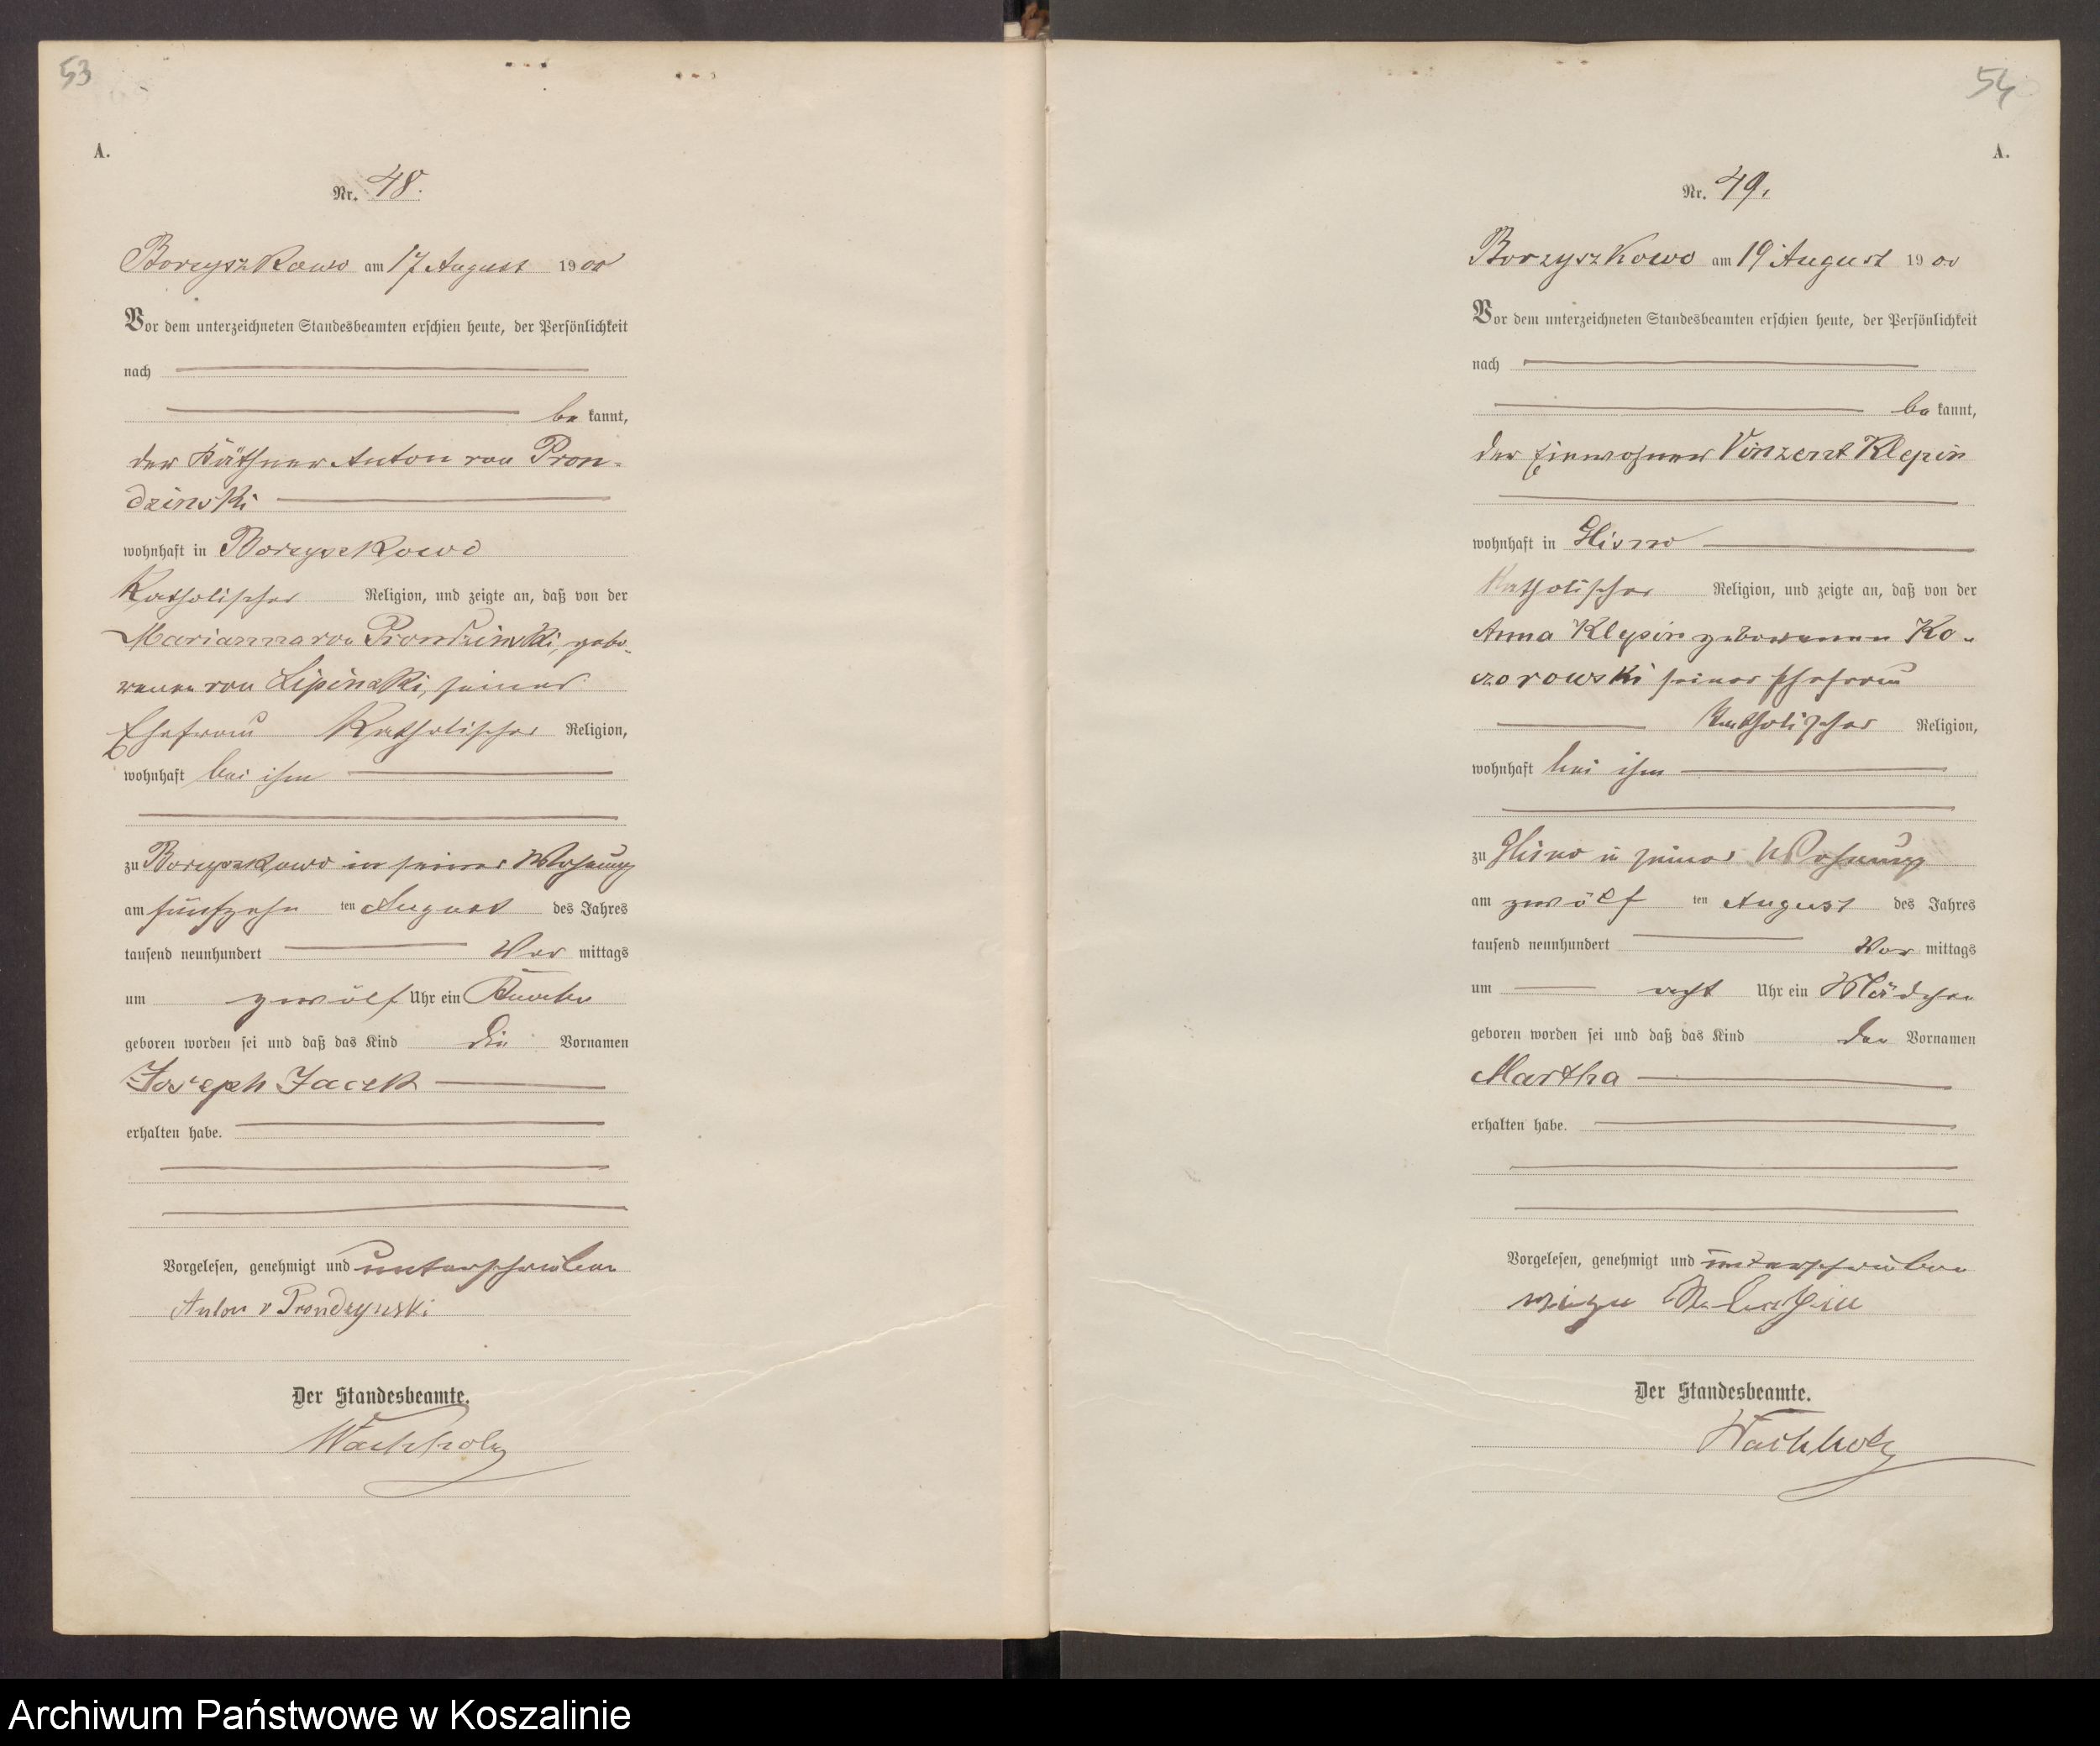 53
A.
Nr. 48.
Borzyszkowo am 17 August 1900
Vor dem unterzeichneten Standesbeamten erschien heute, der Persönlichkeit
nach
be kannt,
der Käthner Anton von Pron-
dzinski
wohnhaft in Borzyszkowo
Katholischer Religion, und zeigte an, daß von der
Marianna von Prondzinski, gebo-
renen von Lipinski, seiner
Ehefrau Katholischer Religion,
wohnhaft bei ihm
zu Borzyszkowo in seiner Wohnung
am fünfzehn ten August des Jahres
tausend neunhundert Vor mittags
um zwölf Uhr ein Knabe
geboren worden sei und daß das Kind die Vornamen
Joseph Jacek
erhalten habe.
Vorgelesen, genehmigt und unterschrieben
Anton v Prondzynski
Der Standesbeamte.
Wachholz
54
A.
Nr. 49.
Borzyszkowo am 19 August 1900
Vor dem unterzeichneten Standesbeamten erschien heute, der Persönlichkeit
nach
be kannt,
der Einwohner Vinzent Klepin
wohnhaft in Glisno
Katholischer Religion, und zeigte an, daß von der
Anna Klepin geborenen Ko-
zorowski seiner Ehefrau
Katholischer Religion,
wohnhaft bei ihm
zu Glisno in seiner Wohnung
am zwölf ten August des Jahres
tausend neunhundert Vor mittags
um acht Uhr ein Mädchen
geboren worden sei und daß das Kind den Vornamen
Martha
erhalten habe.
Vorgelesen, genehmigt und unterschrieben
Der Standesbeamte.
Wachholz
Archiwum Państwowe w Koszalinie